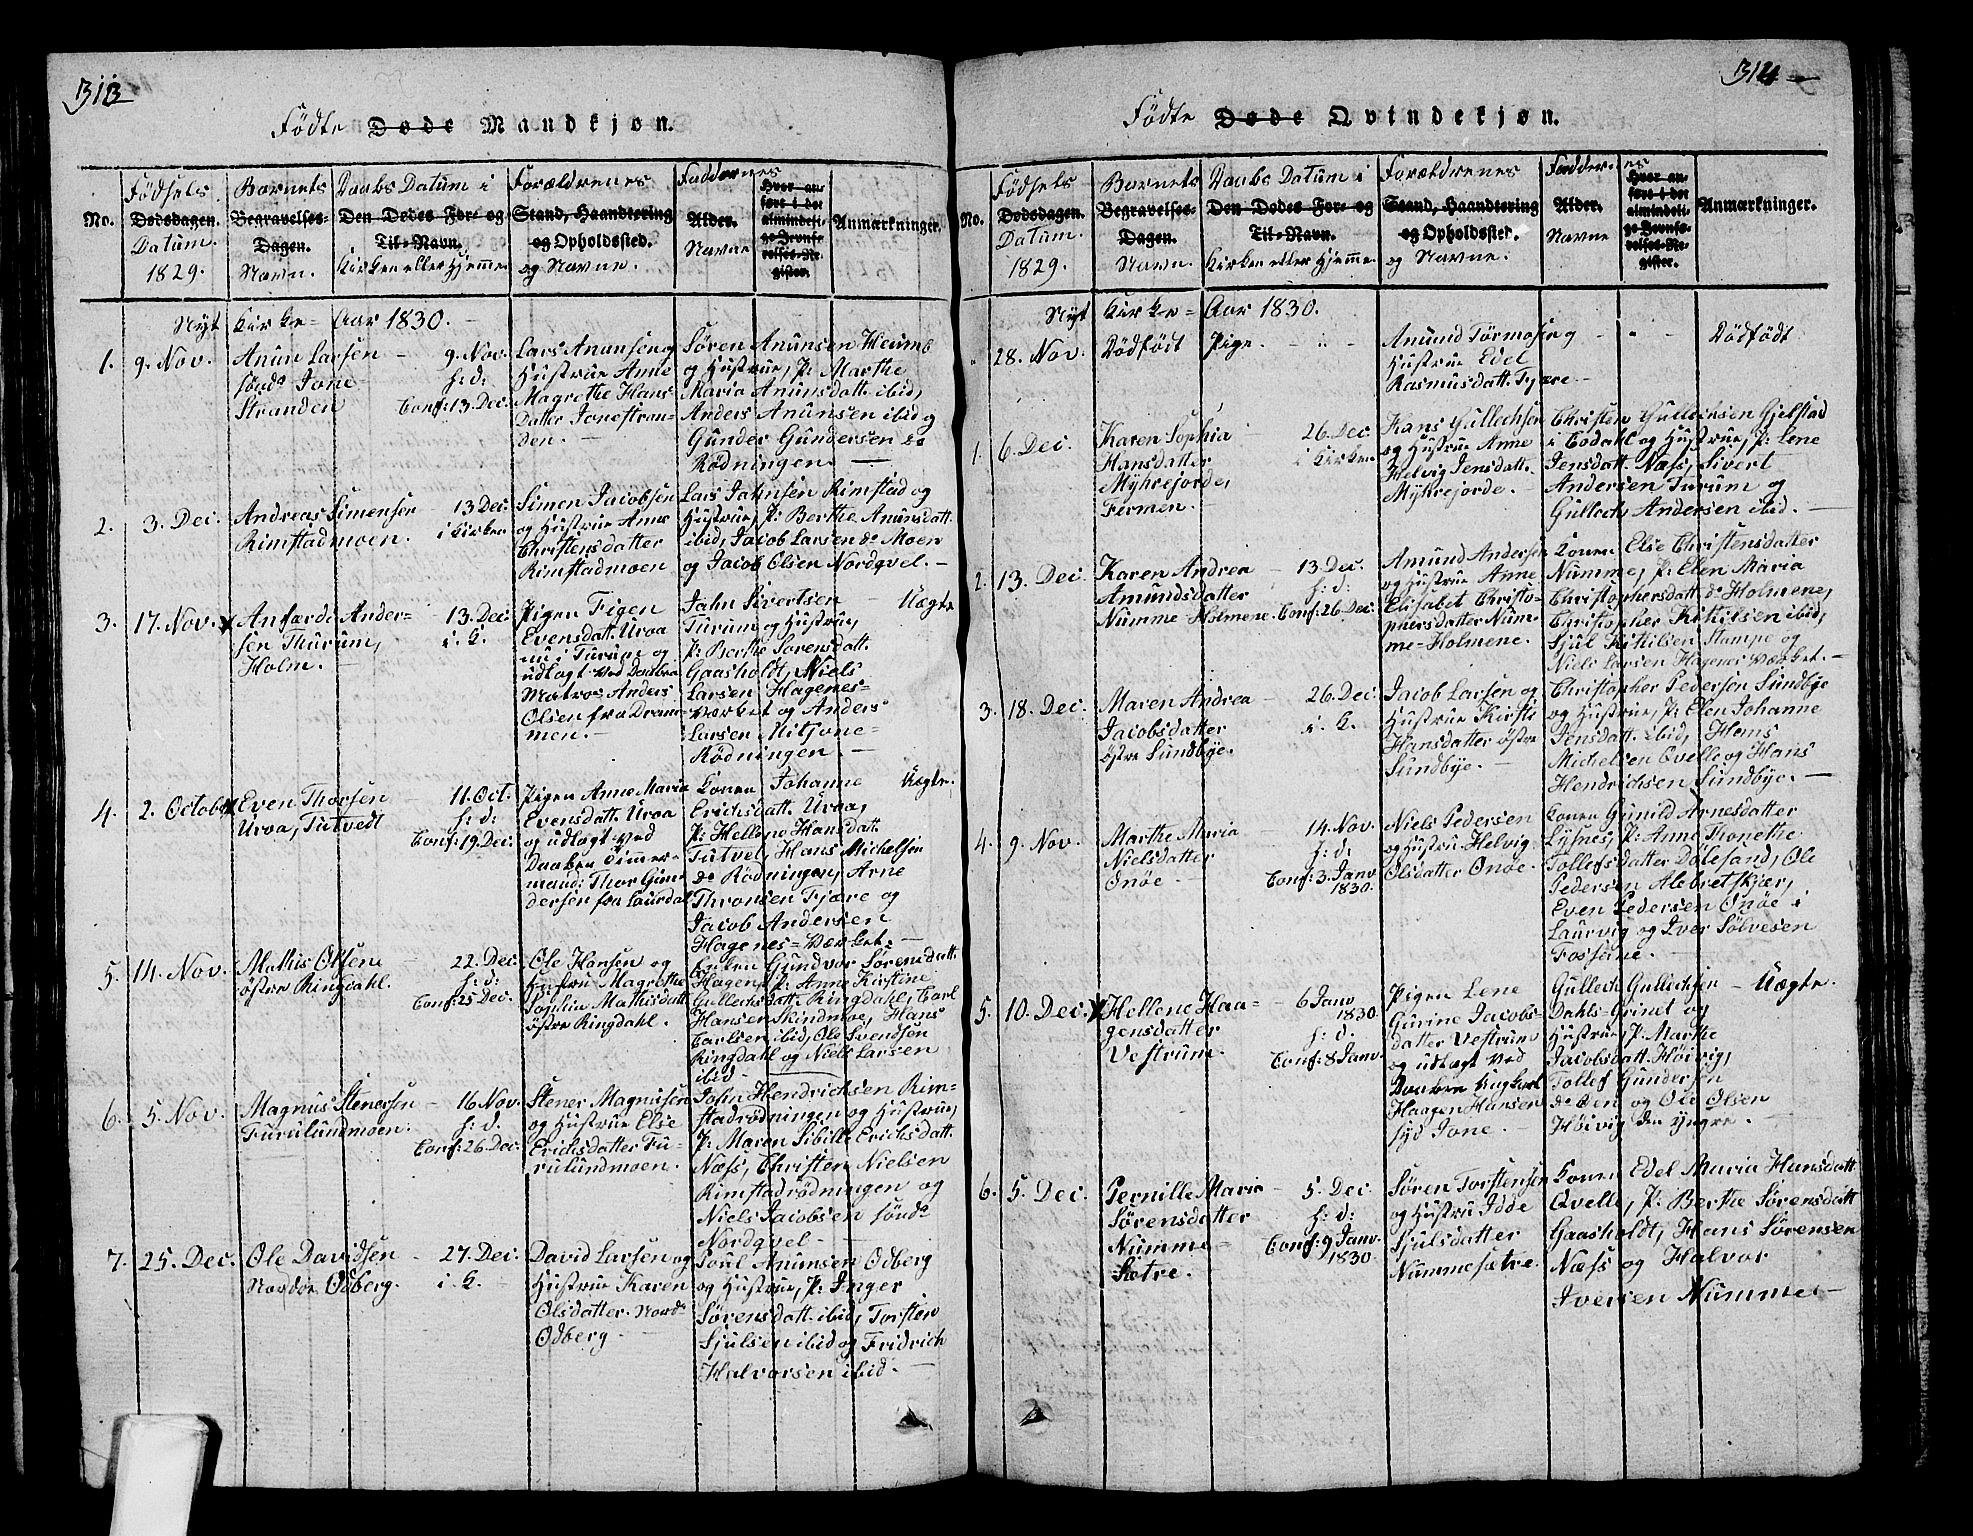 313
Fødte Døde Mandkjøn.
No.
Fødsels
Dødsdagen.
Datum.
1829.
Barnets
Begravelses-
Dagen.
Navn.
Daabs Datum i
Den Dødes For- og
Til-Navn.
Kirken eller Hjemme
Forældrenes
Stand, Haandtering
og Opholdssted.
og Navne.
Faddernes
Alder.
Navne
Hvor an-
ført i det
almindeli-
ge Jevnfø-
relses-Re-
gister.
Anmærkninger.
Nyt Kirke= Aar 1830.
1. 9. Nov.
Anun Larsen
sønd: Jone
Stranden
9. Nov.
h: d:
Conf: 13. Dec.
Lars Anunsen og
Hustrue Anne
Magrethe Hans
Datter Jonestran-
den.
Søren Anunsen Heum
og Hustrue, P: Marthe
Maria Anunsdatt. ibid,
Anders Anunsen ibid og
Gunder Gundersen
Rødningen.
2. 3. Dec.
Andreas Simensen
Rimstadmoen.
13 Dec.
i Kirken
Simen Jacobsen
og Hustrue Anne
Christensdatter
Rimstadmoen
Lars Jahnsen Rimstad og
Hustrue, P: Berthe Anunsdatt.
ibid, Jacob Larsen d: Moen
og Jacob Olsen Nordqvel.
3. 17. Nov.
Anders
Ander-
sen Thurum,
Holm.
13. Dec.
i. K.
Pigen Figen
Evensdatt. Uroa
nu i Turum og
udlagt ved Daaben
Matros Anders
Olsen fra Dram-
men.
Jahn Sivertsen
Turum og Hustrue,
P: Berthe Sørensdatt.
Gaasholdt, Niels
Larsen Hagenes=
Værket og Anders
Larsen Mitjone=
Rødningen
Uægte
4. 2. October
Even Thorsen
Uroa, Tutvedt
11. Oct.
h: d:
Conf: 19. Dec.
Pigen Anne Maria
Evensdatt. Uroa
og udlagt ved
Daaben Timer-
mand: Thor Gun-
dersen fra Laurdal
Konen Johanne
Erichsdatt. Uroa,
P: Hellene Hansdatt.
Tutvet, Hans Michelsen
d: Rødningen, Arne
Thronsen Fjære og
Jacob Andersen
Hagenes=Værket.
Uægte.
5. 14. Nov.
Mathis Olsen
østre Ringdahl.
22. Dec.
h: d:
Conf: 25 Dec.
Ole Hansen og
Hustru Magrethe
Sophia Mathisdatt
østre Ringdahl.
Enken Gundvor Sørensdatt.
Hagen, P: Anne Kirstine
Gullechsdatt. Ringdahl, Carl
Hansen Skindmoe, Hans
Carlsen ibid, Ole Svendsen
Ringdahl og Niels Larsen
ibid
6. 5. Nov.
Magnus Stenersen
Furulundmoen.
16 Nov.
h: d.
Conf: 26 Dec.
Stener Magnusen
og Hustrue Else
Erichsdatter Fu-
rulundmoen.
John Hendrichsen Rim=
stadrødningen og Hustrue,
P: Maren Sibille Erichsdatt.
Næss, Christen Nielsen
Rimstadrødningen og
Niels Jacobsen sønd:
Nordqvel
7. 25. Dec.
Ole Davidsen
Nordre Odberg.
27. Dec.
i. K.
David Larsen og
Hustrue Karen
Olsdatter Nord:
Odberg
Poul Anunsen Odberg
og Hustrue, P: Inger
Sørensdatt. ibid, Torsten
Sjulsen ibid og Fridrich
Halvorsen ibid.
314
Fødte Døde Qvindekjøn.
No.
Fødsels
Dødsdagen.
Datum.
1829.
Barnets
Begravelses-
Dagen.
Navn.
Daabs Datum i
Den Dødes For- og
Til-Navn.
Kirken eller Hjemme
Forældrenes
Stand, Haandtering
og Opholdssted.
og Navne.
Faddernes
Alder.
Navne
Hvor an-
ført i det
almindeli-
ge Jevnfø-
relses-Re-
gister.
Anmærkninger.
Nyt Kirke= Aar 1830.
28. Nov.
Dødfødt Pige.
Anund Tormosen og
Hustrue Edel
Rasmusdatt. Fjære
Dødfødt
1. 6. Dec.
Karen Sophia
Hansdatter
Mykrejorde,
Fermen.
26. Dec.
i Kirken
Hans Gullechsen
og Hustrue Anne
Helvig Jensdatt.
Mykrejorde.
Christen Gullechsen Gjelstad
i Kodahl og Hustrue, P: Lene
Jensdatt. Næss, Sivert
Andersen Turum og
Gullech Andersen ibid.
2. 13. Dec.
Karen Andrea
Amundsdatter
Numme Holmene.
13 Dec.
h: d:
Conf: 26. Dec.
Amund Andersen
og Hustrue Anne
Elisabet Christo-
phersdatter Num-
me=Holmene.
Konen Else Christensdatter
Numme, P: Elen Maria
Christophersdatt. d: Holmene,
Christopher Kittilsen ibid,
Sjul Kittilsen Stampe og
Niels Larsen Hagenes Værket.
3. 18. Dec.
Maren Andrea
Jacobsdatter
østre Sundbye.
26. Dec.
i. K.
Jacob Larsen og
Hustrue Kirsti
Hansdatter østre
Sundbye.
Christopher Pedersen Sundbye
og Hustrue, P: Elen Johanne
Jensdatt. ibid, Hans
Michelsen Qvelle og Hans
Hendrichsen Sundbye.
4. 9. Nov.
Marthe Maria
Nielsdatter
Onøe
14. Nov.
h: d:
Conf: 3. Janv.
1830.
Niels Pedersen
og Hustru Helvig
Olsdatter Onøe.
Konen Gunild Arnesdatter
Lysnes, P: Anne Thonethe
Tollefsdatter Dølesand, Ole
Pedersen Alebretskjær,
Even Pedersen Onøe i
Laurvig og Iver Sølvesen
Fosserne.
5. 10. Dec.
Hellene Haa=
gensdatter
Vestrum.
6 Janv
1830.
h: d.
Conf: 8 Janv.
Pigen Lene
Gurine Jacobs
datter Vestrum
og udlagt ved
Daaben Ungkarl
Haagen Hansen
syd Jone.
Gullech Gullechsen
Dahls=Grinet og
Hustrue, P: Marthe
Jacobsdatt. Høivig,
Tollef Gundersen
d: Øen og Ole Olsen
Høivig den Yngre.
Uægte.
6. 5. Dec.
Pernille Maria
Sørensdatter
Numme=
Sætre.
5. Dec.
h: d:
Conf: 9 Janv.
1830.
Søren Torstensen
og Hustru Idde
Sjulsdatter
Nummesætre.
Konen Edel Maria Hansdatt.
Qvelle, P: Berthe Sørensdatt
Gaasholdt, Hans Sørensen
Næss og Halvor
Iversen Numme